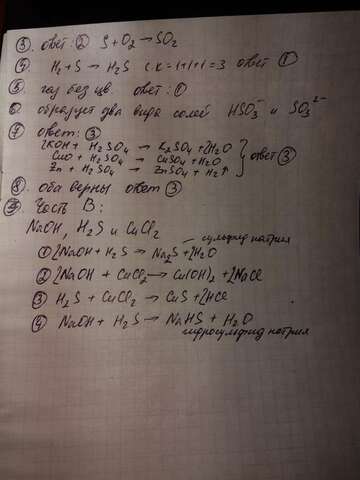 ③. ответ: ② S+O₂→SO₂
④. H₂+S → H₂S с.к=1+1+1=3 ответ ①
⑤. газ без цв. ответ: ①
⑥. образует два вида солей HSO₃⁻ и SO₃²⁻
⑦ ответ: ③
2KOH + H₂SO₄ → K₂SO₄ + 2H₂O
CuO + H₂SO₄ → CuSO₄ + H₂O } ответ ③
Zn + H₂SO₄ → ZnSO₄ + H₂↑
⑧. оба верны ответ ③
Часть B:
NaOH, H₂S и CuCl₂
сульфид натрия
① 2NaOH + H₂S → Na₂S + 2H₂O
② 2NaOH + CuCl₂ → Cu(OH)₂ + 2NaCl
③ H₂S + CuCl₂ → CuS + 2HCl
④ NaOH + H₂S → NaHS + H₂O
гидросульфид натрия